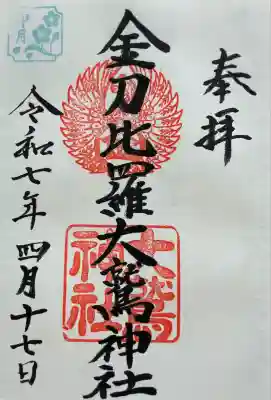 奉拝
金刀比羅大鷲神社
大鷲
神社
令和七年 四月十七日